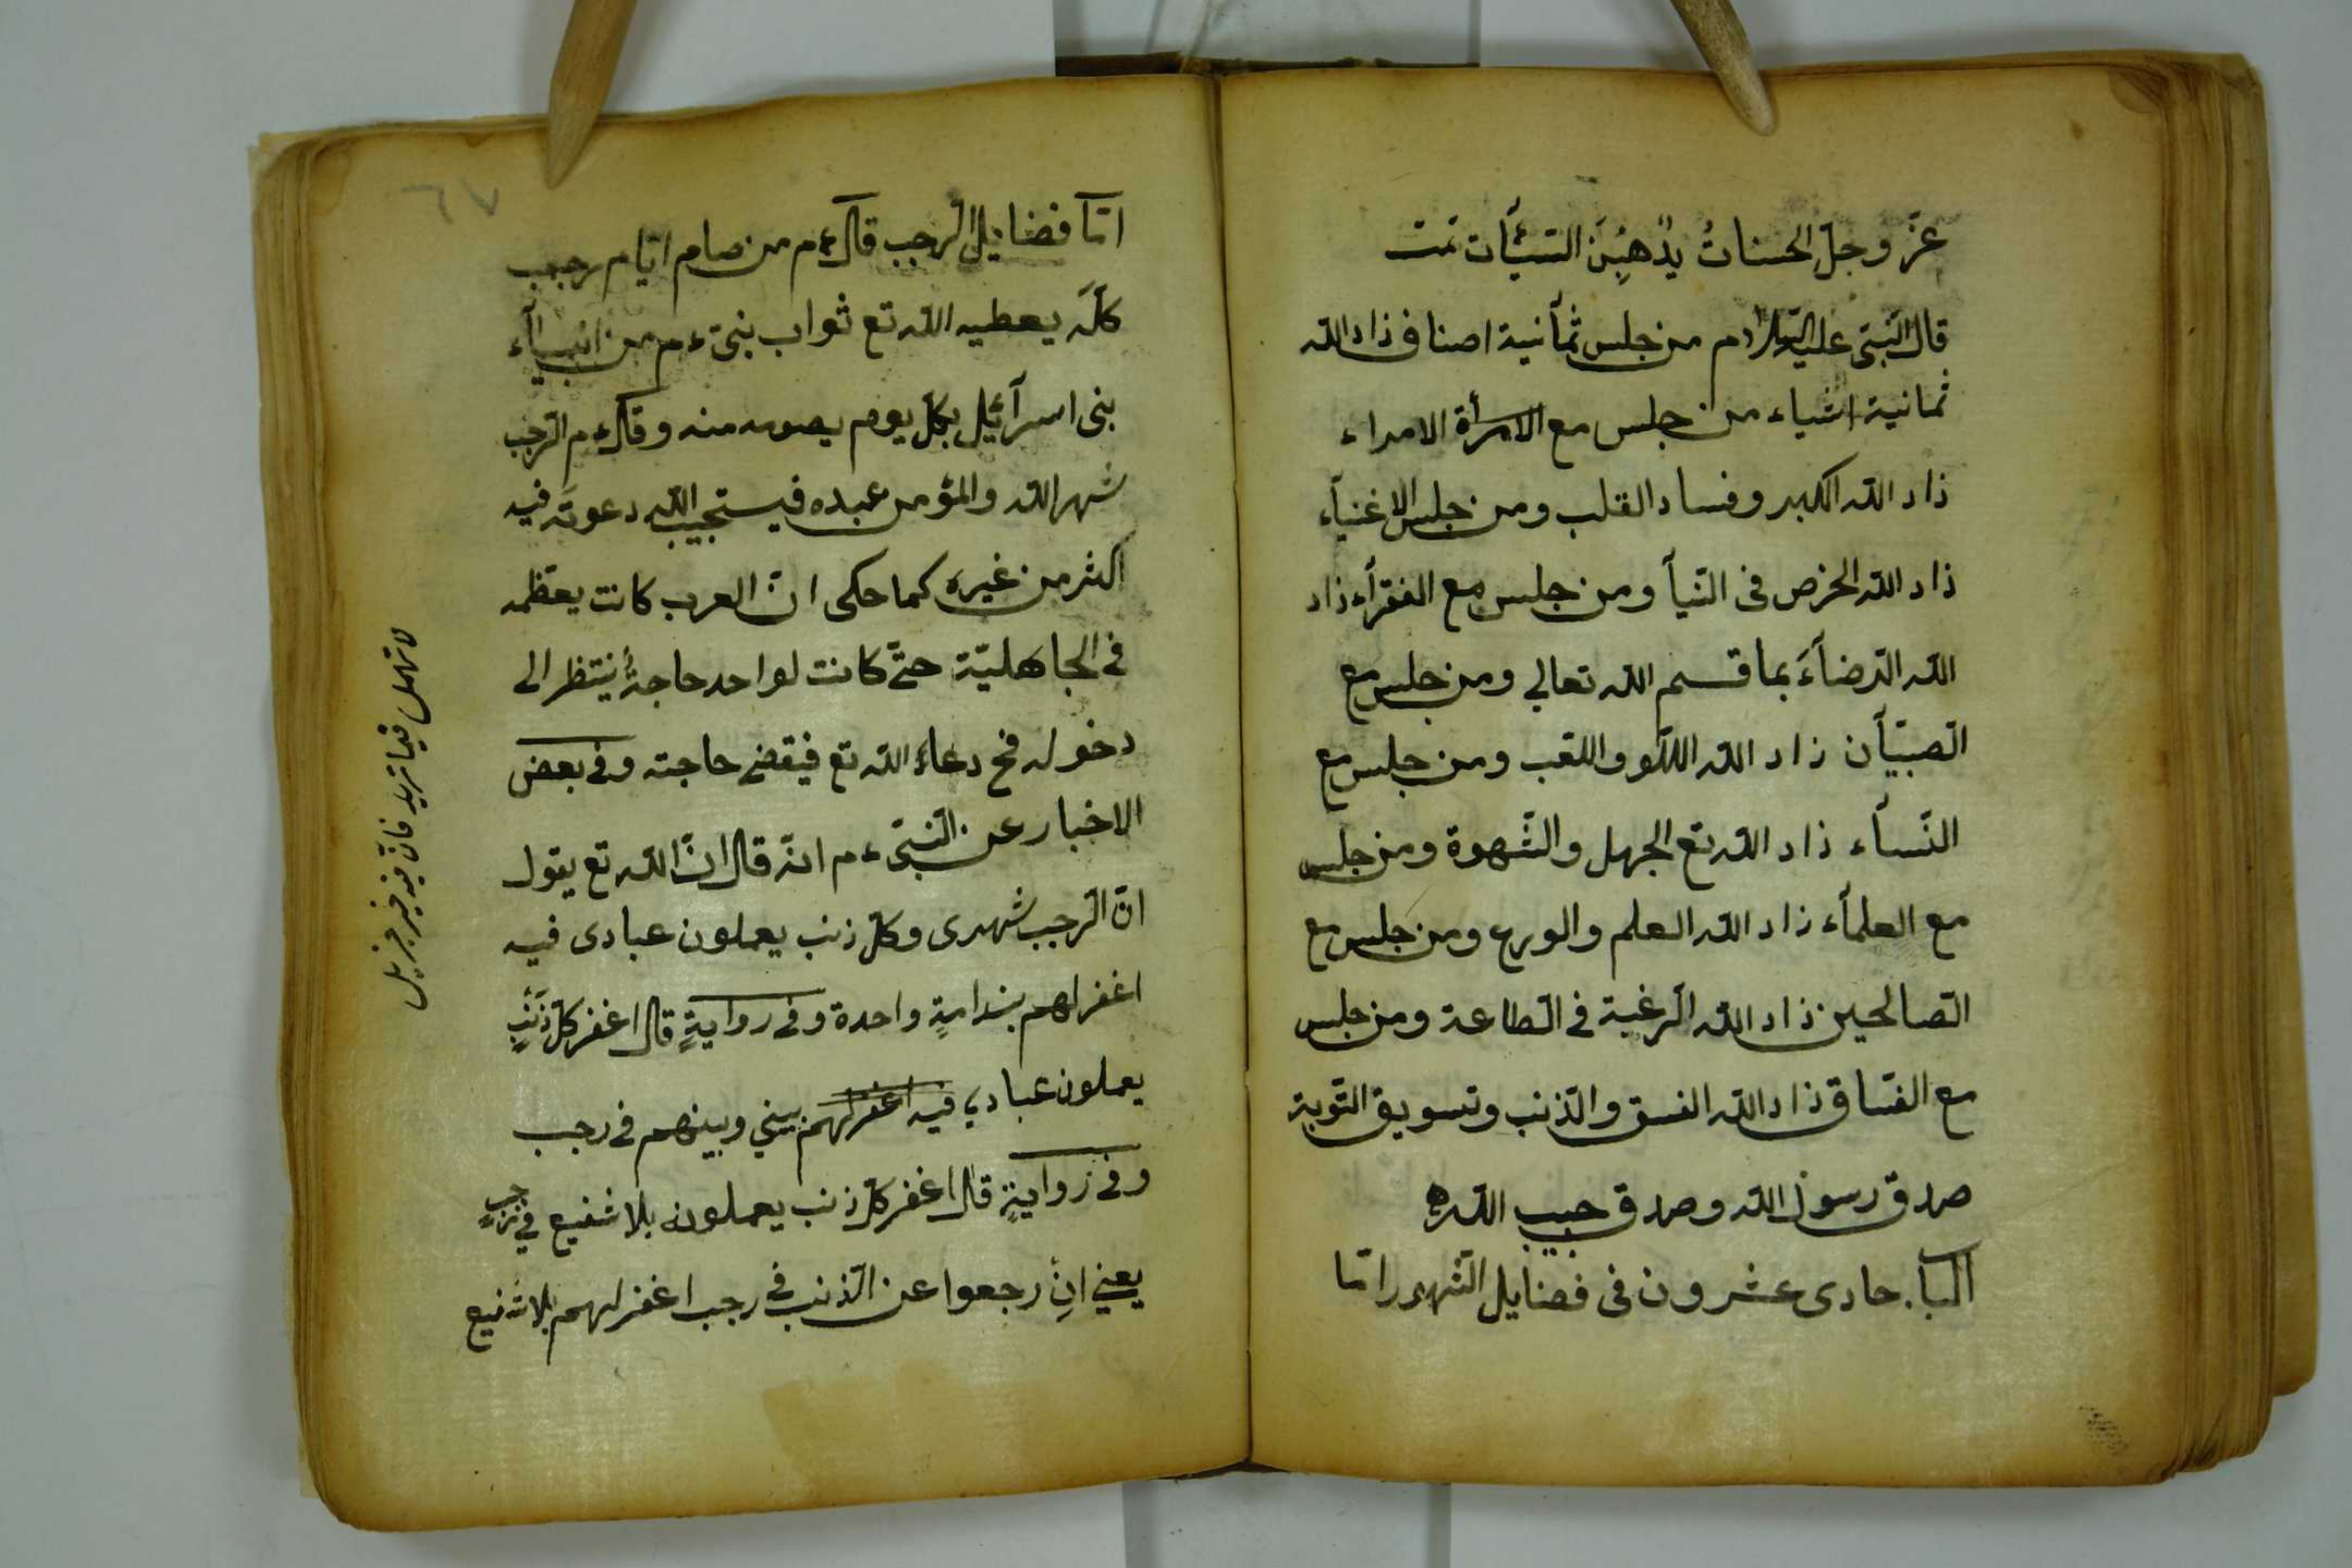 عزّ وجلّ الحسناتُ يذْهِبْنَ السّيّأت تمت
قال النّبىّ عليه السّلام من جلس ثمآنية اصناف ذاد اللّه
ثمانية اشياء من جلس مع الامرأة الامراء
ذاد اللّه الكبر وفساد القلب ومن جلس الاغنيآء
ذاد اللّه الحرص فى الدّنيآ ومن جلس مع الفقرآء ذاد
اللّه الرّضآءَ بما قسم اللّه تعالي ومن جلس مع
الصّبيّآن زاد اللّه اللّهو واللعب ومن جلس مع
النّسآء ذاد اللّه تع الجهل والشّهوة ومن جلس
مع العلمآء زاد اللّه العلم والورع ومن جلس مع
الصّالحين ذاد اللّه الرّغبة فى الطّاعة ومن جلس
مع الفسّاق ذاد اللّه الفسق والذّنب وتسويق التّوبة
صدق رسول اللّه وصدق حبيب اللّه
الباب حادى عشرون فى فضايل الشّهور امّا
٦٧
امّا فضايل الرّجب قال ءم من صام ايّام رجب
كلّه يعطيه اللّه تع ثواب بنىّ ءم من انبيآء
بنى اسرآئيل بكلّ يوم يصومه منه وقال ءم الرّجب
شهر اللّه والمؤمن عبده فيستجيب اللّه دعوته فيه
اكثر من غيره كما حكى انّ العرب كانت يعظّمه
فى الجاهليّة حتّى كانت لواحد حاجةٌ ينتظر الى
دخوله فح دعاء اللّه تع فيقضى حاجته وفى بعض
الاخبار عن النّبىّ ءم انّه قال انّ اللّه تع يقول
انّ الرّجب شهرى وكلّ ذنب يعملون عبادى فيه
اغفر لهم بندامةٍ واحدة وفى روايةٍ قال اغفر كلّ ذَنْبٍ
يعملون عبادي فيه اغفر لهم بيني وبينهم فى رجب
وفى روايةٍ قال اغفر كلّ ذنب يعملون بلا شفيع في رجبٍ
يعني انْ رجعوا عن الذّنب فى رجب اغفر لهم بلا شفيع
لا تهمل فيما تريد فانّ فيه خير جزيل